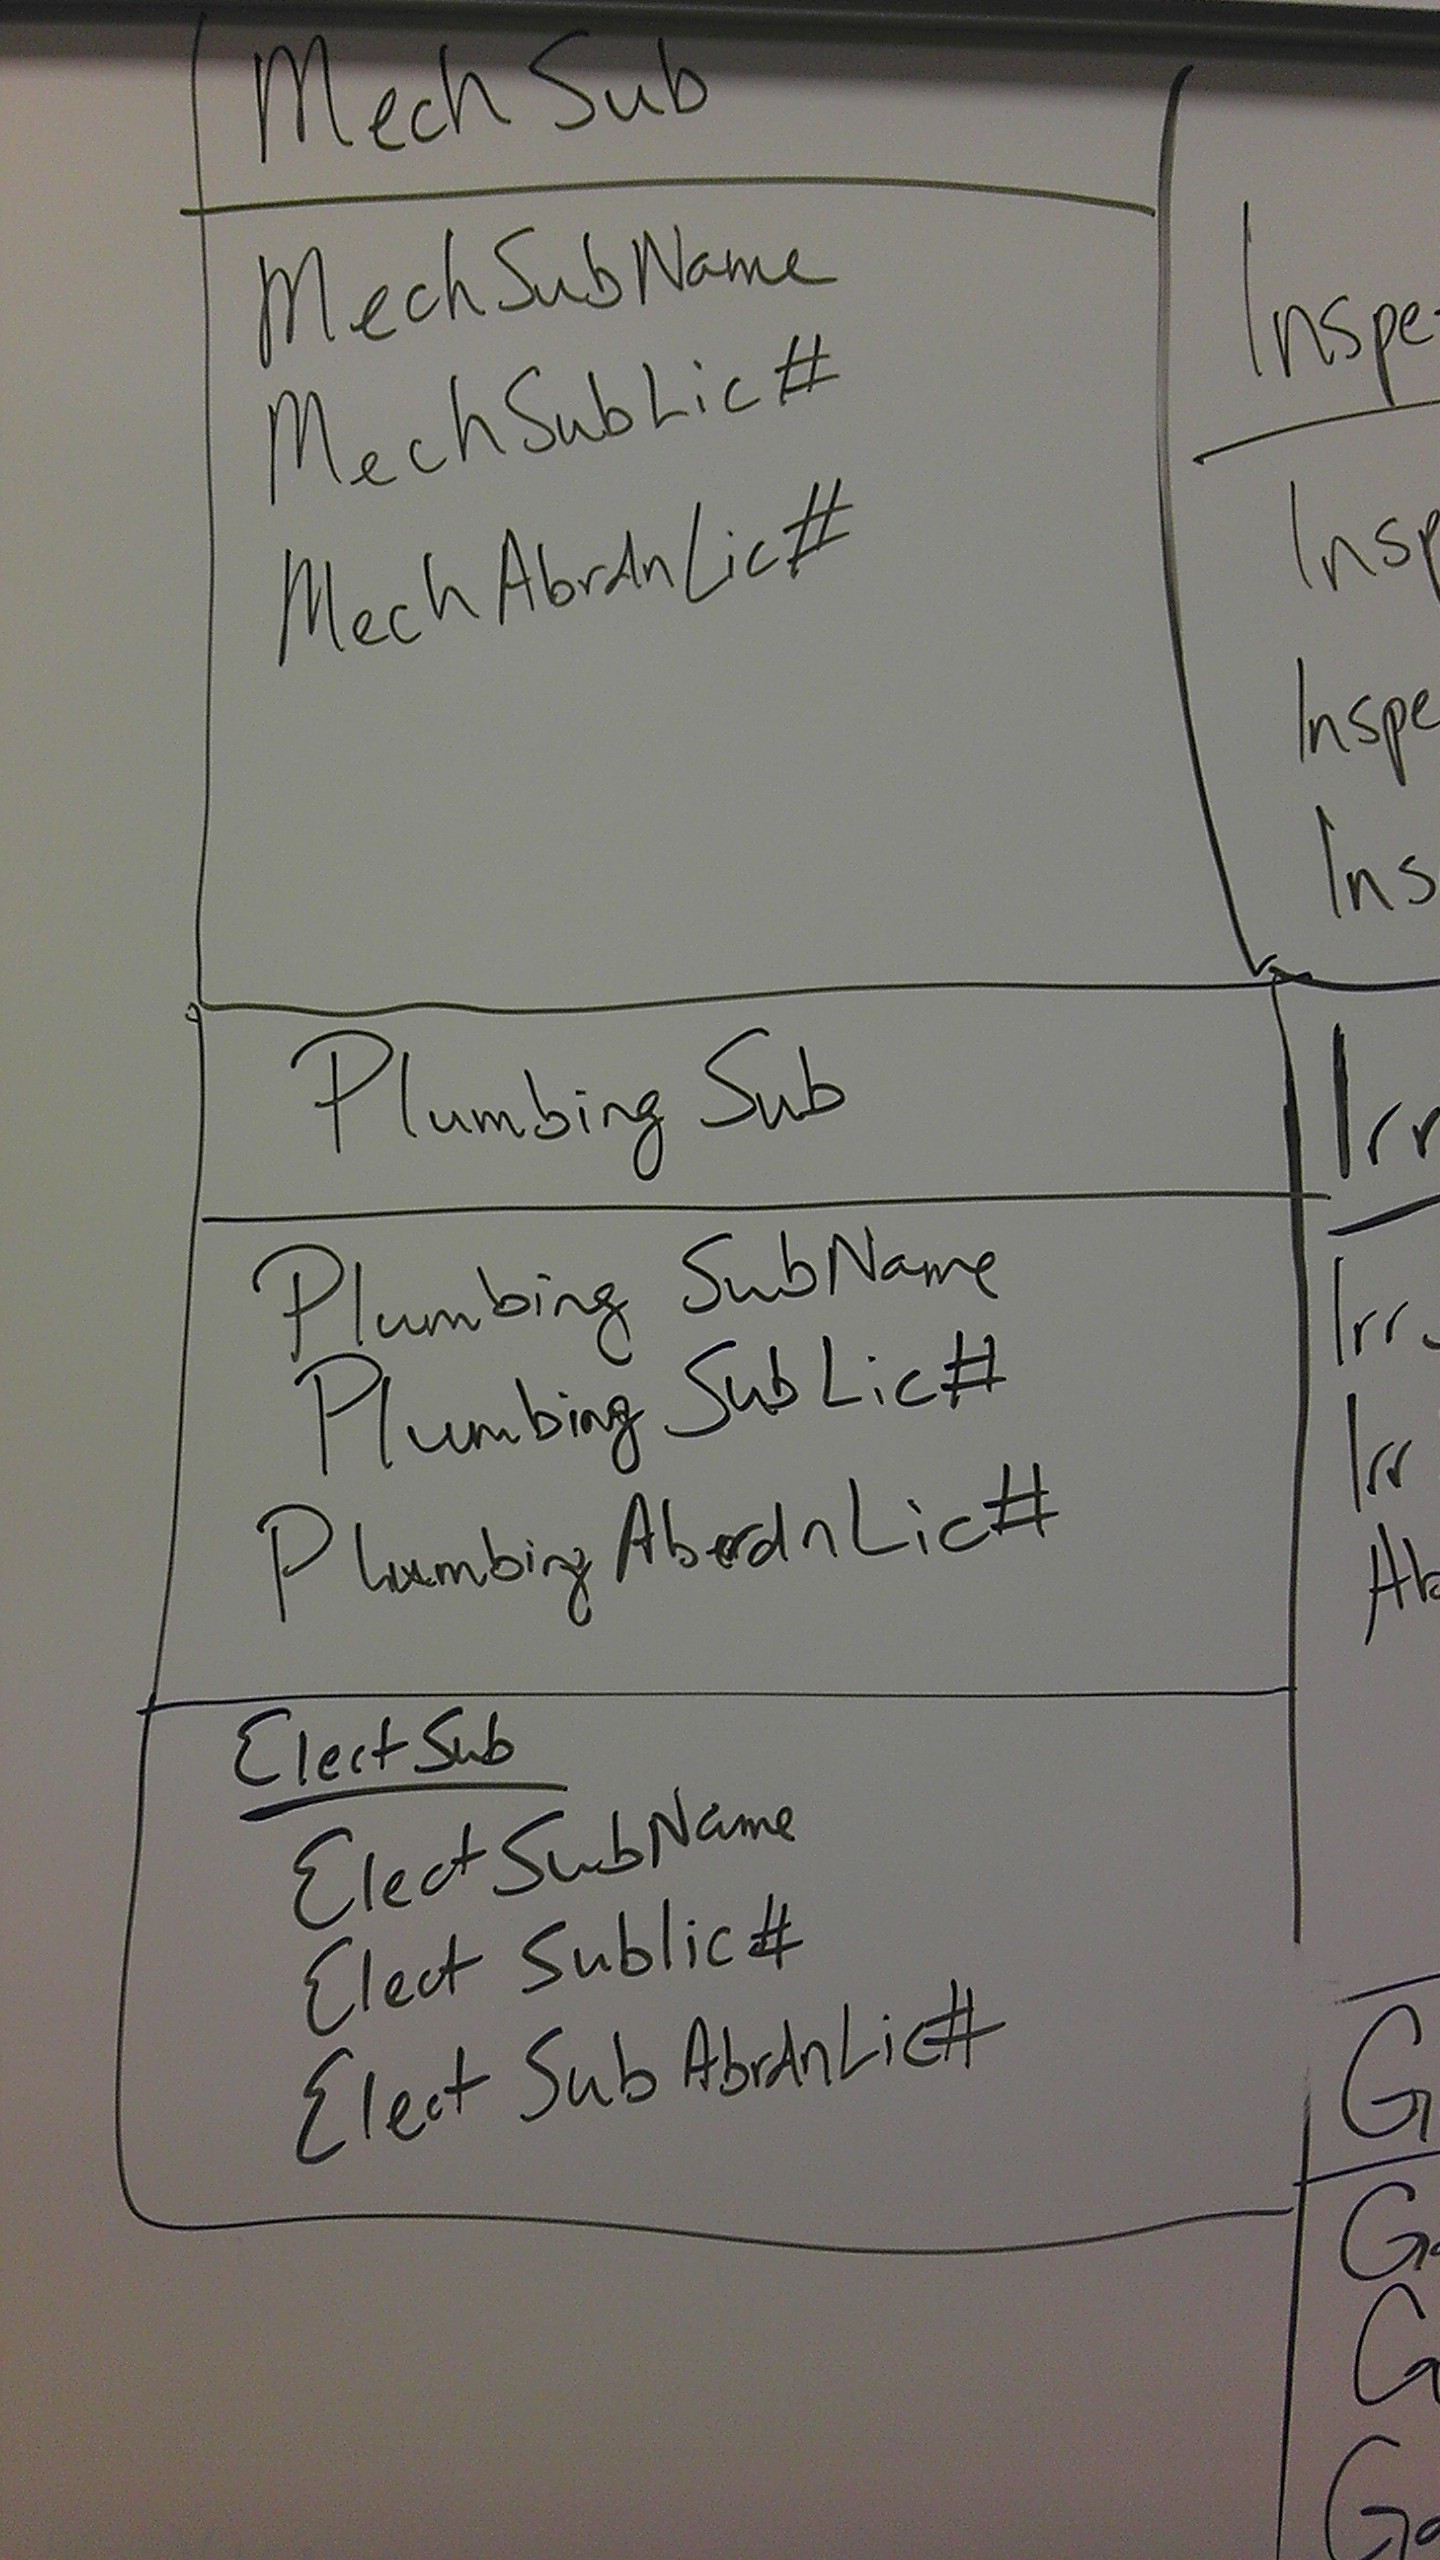 Mech Sub
MechSubName
MechSubLic#
MechAbrdnLic#
Plumbing Sub
Plumbing SubName
Plumbing SubLic#
PlumbingAberdnLic#
ElectSub
ElectSubName
Elect Sublic#
Elect Sub AbrdnLic#
Inspe
Insp
Inspe
Ins
Irr
Irr
Irr
Ab
G
Ga
G
Ga